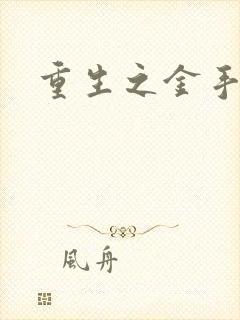 重生之金手
風舟